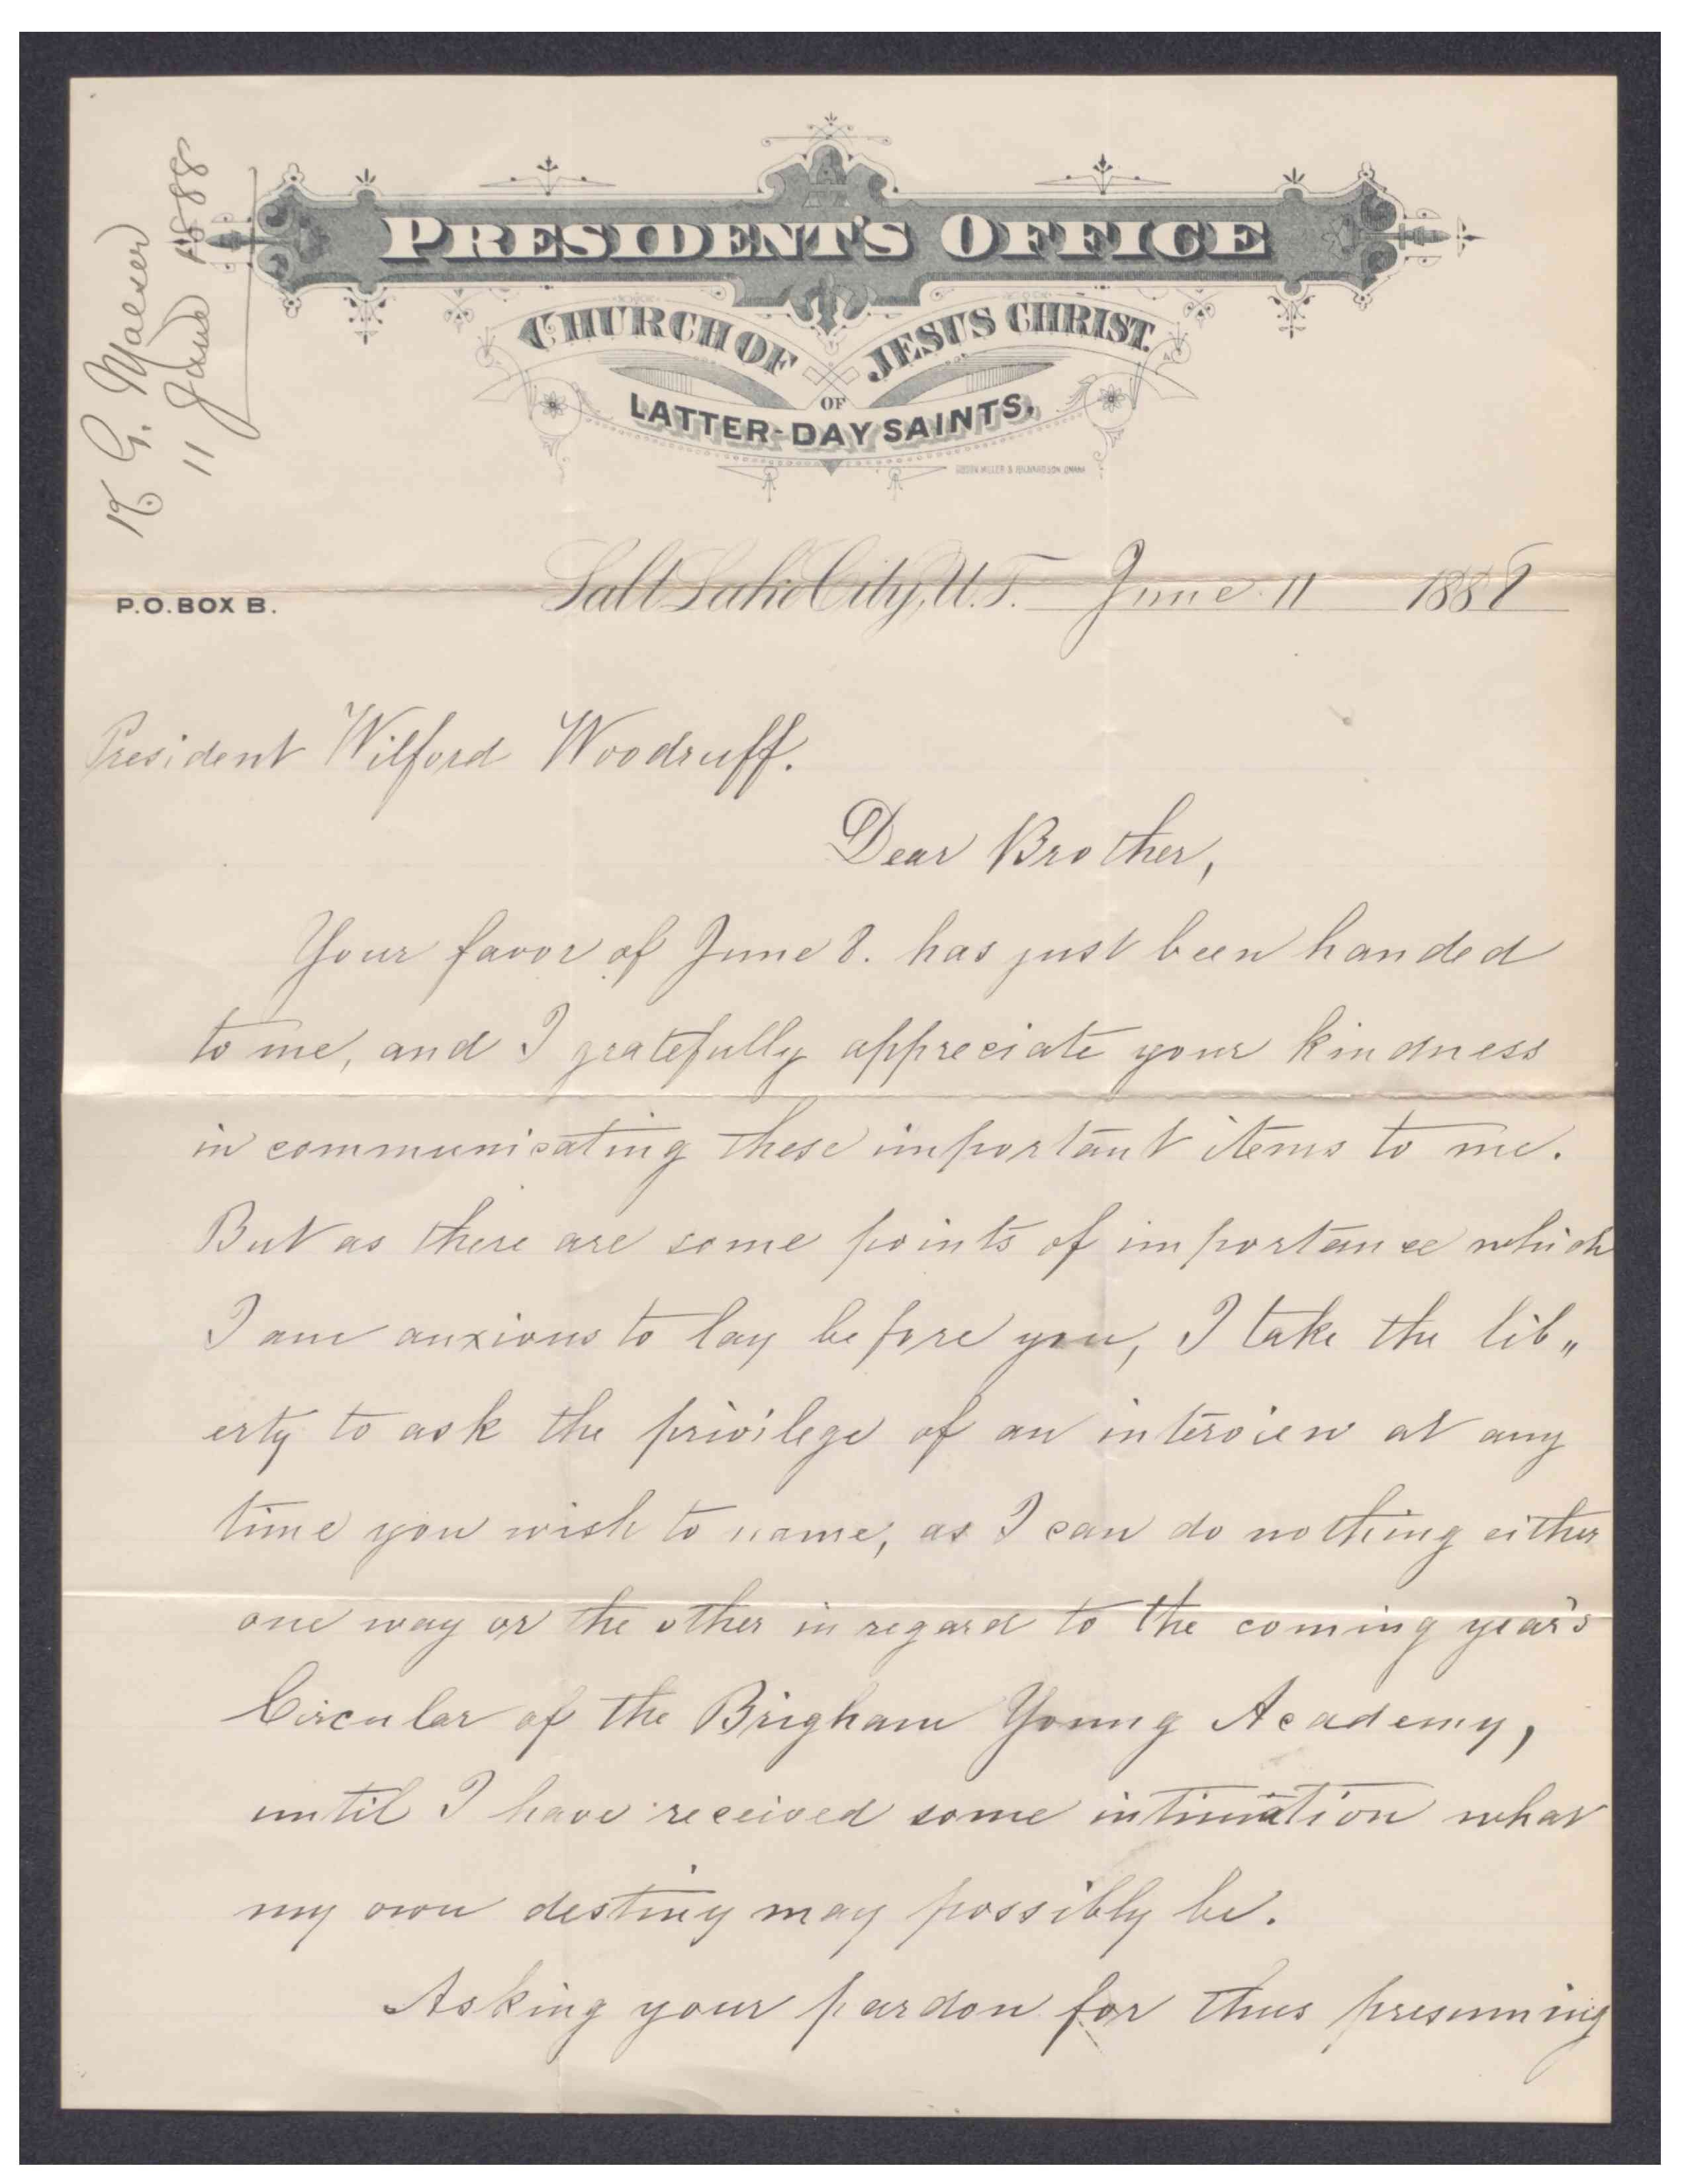 K G. Maeser
11 June 1888
PRESIDENT'S OFFICE
CHURCH OF JESUS CHRIST
OF
LATTER-DAY SAINTS.
P.O. BOX B.
Salt Lake City, U.T. June 11 1888
President Wilford Woodruff.
Dear Brother,
Your favor of June 8. has just been handed
to me, and I gratefully appreciate your kindness
in communicating these important items to me.
But as there are some points of importance which
I am anxious to lay before you, I take the lib„
erty to ask the privilege of an interview at any
time you wish to name, as I can do nothing either
one way or the other in regard to the coming year's
Circular of the Brigham Young Academy,
until I have received some intimation what
my own destiny may possibly be.
Asking your pardon for thus presuming